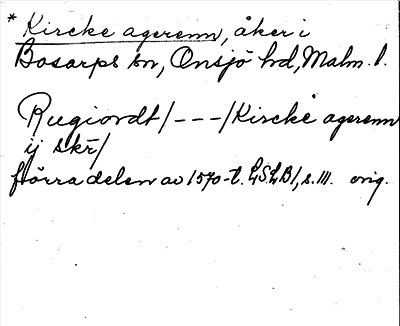 * Kircke agerenn, åker i
Bosarps sn, Onsjö hd, Malm. l.
Rugiordt/---/Kircke agerenn
ij skr/
förra delen av 1570-t. LSLB1, s. 111. orig.